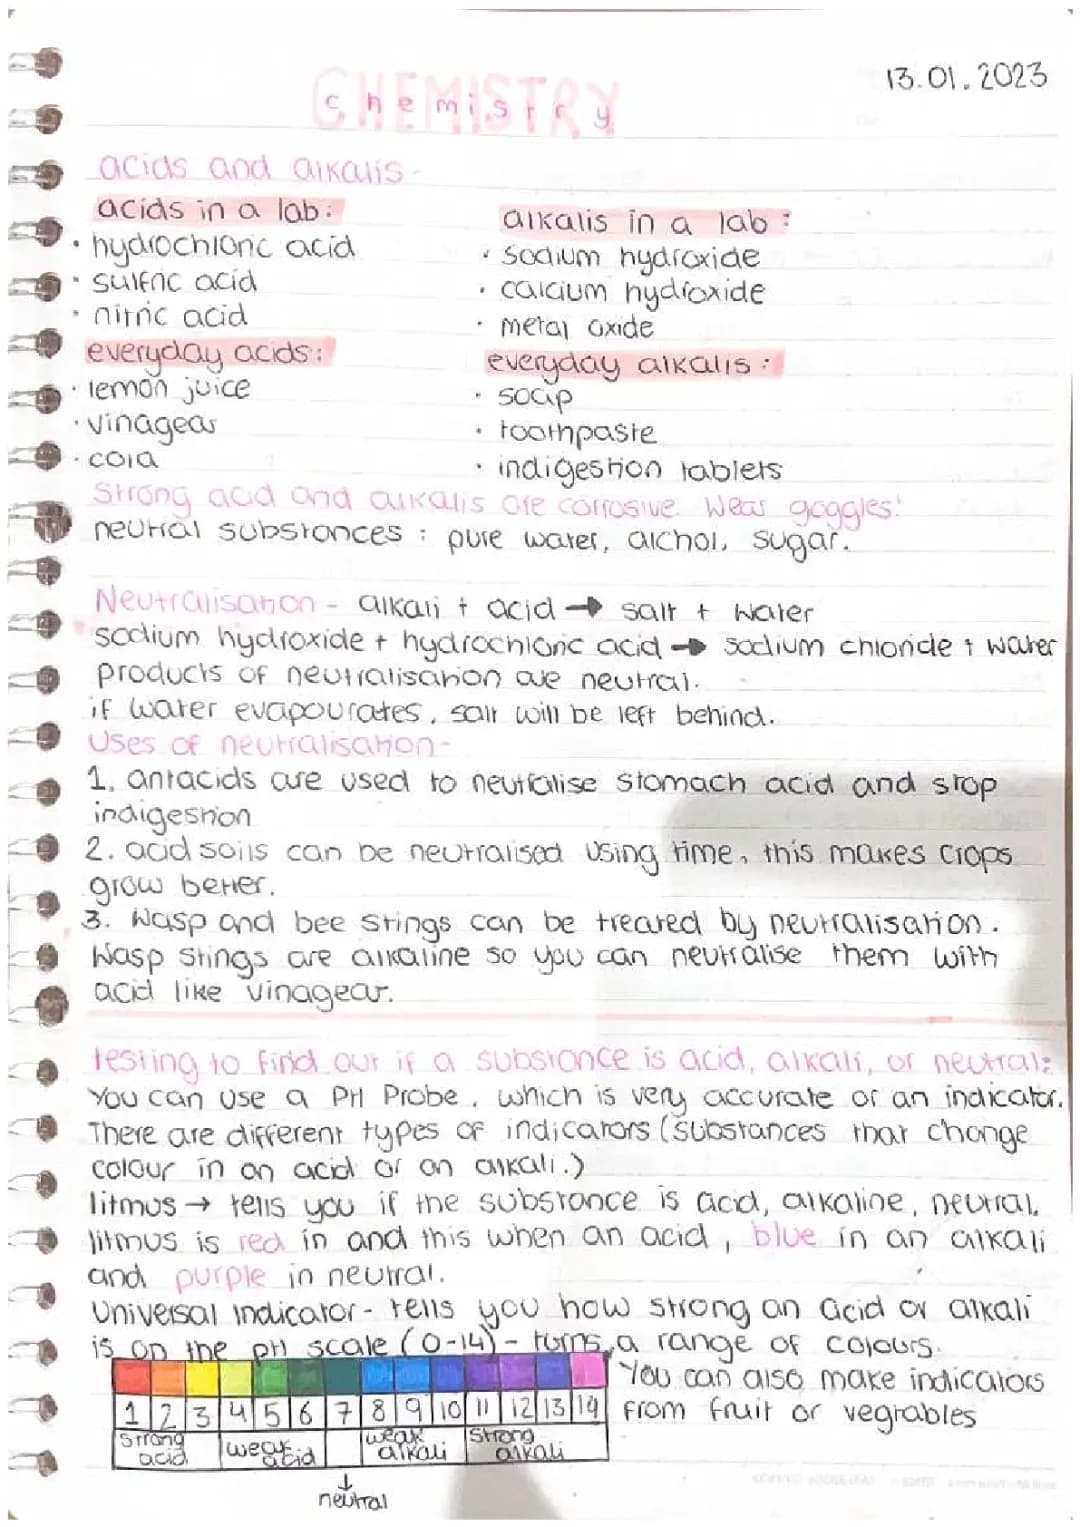 13.01.2023
CHEMISTRY
chemistry
acids and alkalis -
acids in a lab:
• hydrochloric acid
• sulfric acid
• nitric acid
everyday acids:
• lemon juice
• vinagear
• cola
alkalis in a lab:
• sodium hydroxide
• calcium hydroxide
• metal oxide
everyday alkalis:
• soap
• toothpaste
• indigestion tablets
Strong acid and alkalis are corrosive. Wear goggles!
neutral substances : pure water, alchol, sugar.
Neutralisation - alkali + acid → salt + water
sodium hydroxide + hydrochloric acid → sodium chloride + water
products of neutralisation are neutral.
if water evapourates, salt will be left behind.
Uses of neutralisation -
1. antacids are used to neutralise stomach acid and stop
indigestion
2. acid soils can be neutralised using time, this makes crops
grow better.
3. Wasp and bee stings can be treated by neutralisation.
Wasp stings are alkaline so you can neutralise them with
acid like vinagear.
testing to find out if a substance is acid, alkali, or neutral:
You can use a PH Probe, which is very accurate or an indicator.
There are different types of indicators (substances that change
colour in an acid or an alkali.)
litmus → tells you if the substance is acid, alkaline, neutral.
litmus is red in and this when an acid, blue in an alkali
and purple in neutral.
Universal indicator - tells you how strong an acid or alkali
is on the pH scale (0-14) - turns a range of colours.
You can also make indicators
from fruit or vegtables
1 2 3 4 5 6 7 8 9 10 11 12 13 14
strong acid weak acid weak alkali strong alkali
neutral